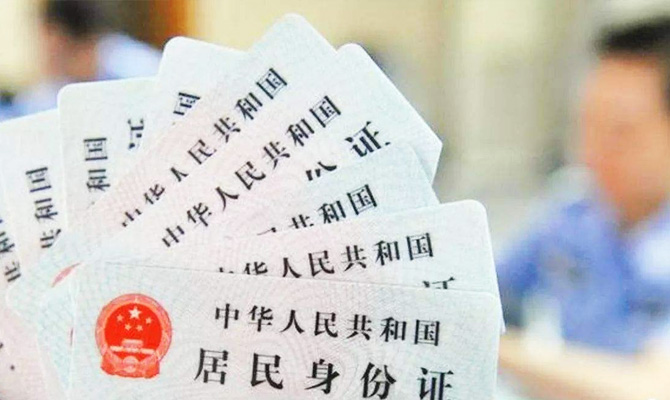 国
国
和国
国
证
中华人民共和国
中华人民共和国
份证
共和国
中华人民共和国
证
中华人民共和国
居民身份证